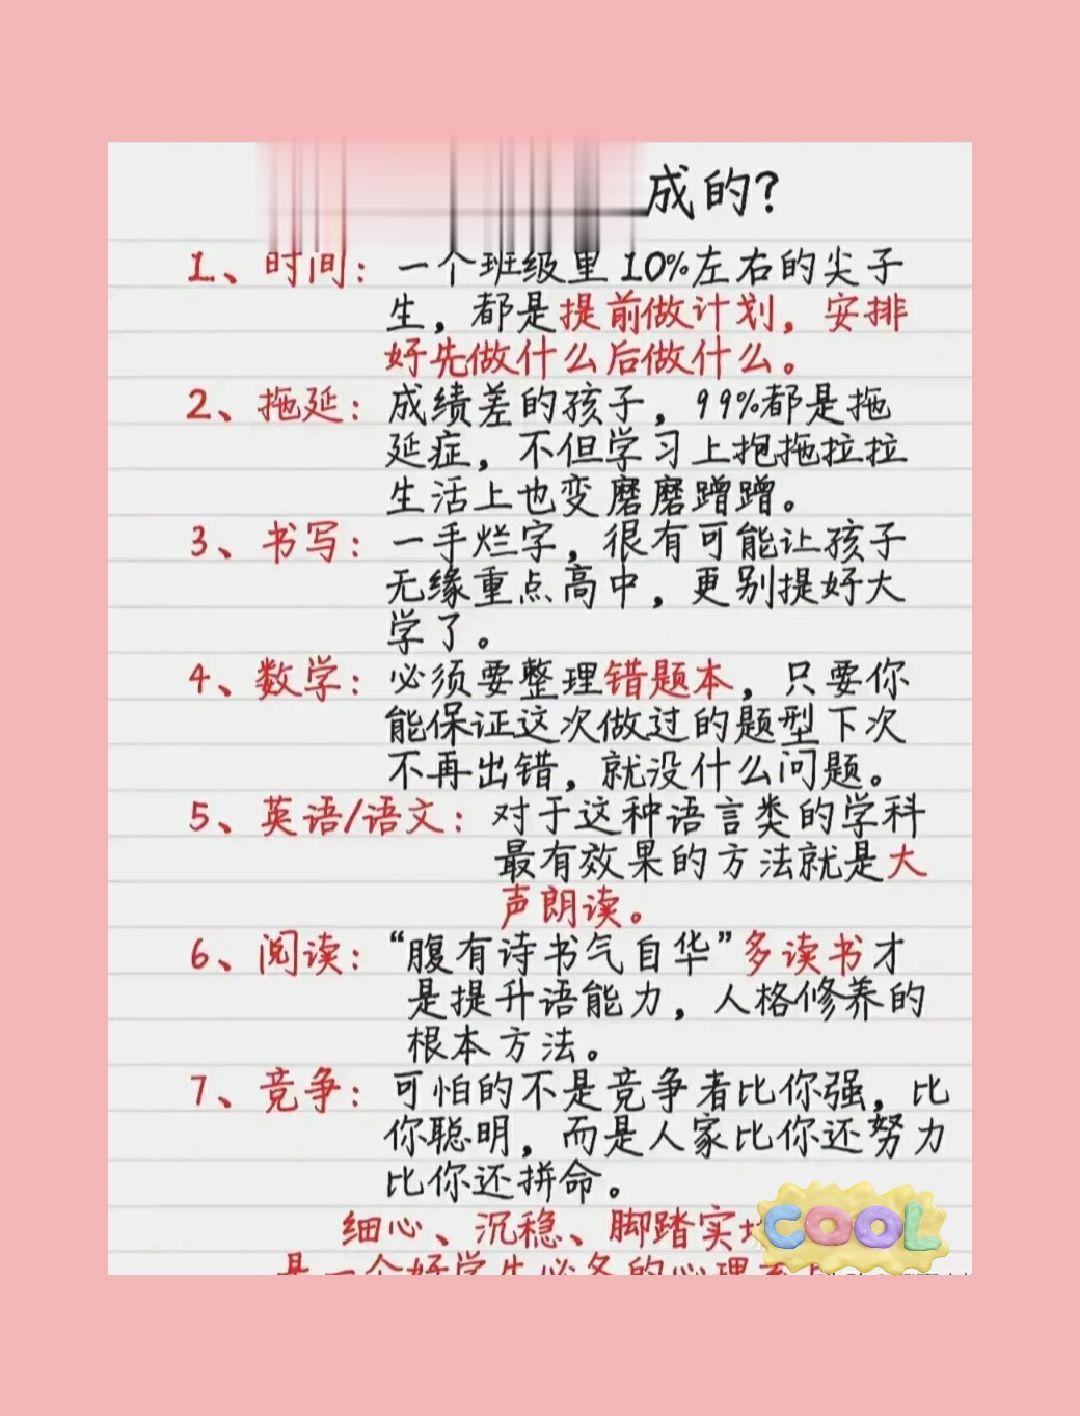 成的?
1、时间：一个班级里10%左右的尖子
生，都是提前做计划，安排
好先做什么后做什么。
2、拖延：成绩差的孩子，99%都是拖
延症，不但学习上抱拖拉拉
生活上也变磨磨蹭蹭。
3、书写：一手烂字，很有可能让孩子
无缘重点高中，更别提好大
学了。
4、数学：必须要整理错题本，只要你
能保证这次做过的题型下次
不再出错，就没什么问题。
5、英语/语文：对于这种语言类的学科
最有效果的方法就是大
声朗读。
6、阅读：“腹有诗书气自华”多读书才
是提升语能力，人格修养的
根本方法。
7、竞争：可怕的不是竞争者比你强，比
你聪明，而是人家比你还努力
比你还拼命。
细心、沉稳、脚踏实
COOL
是一个好学生必备的心理